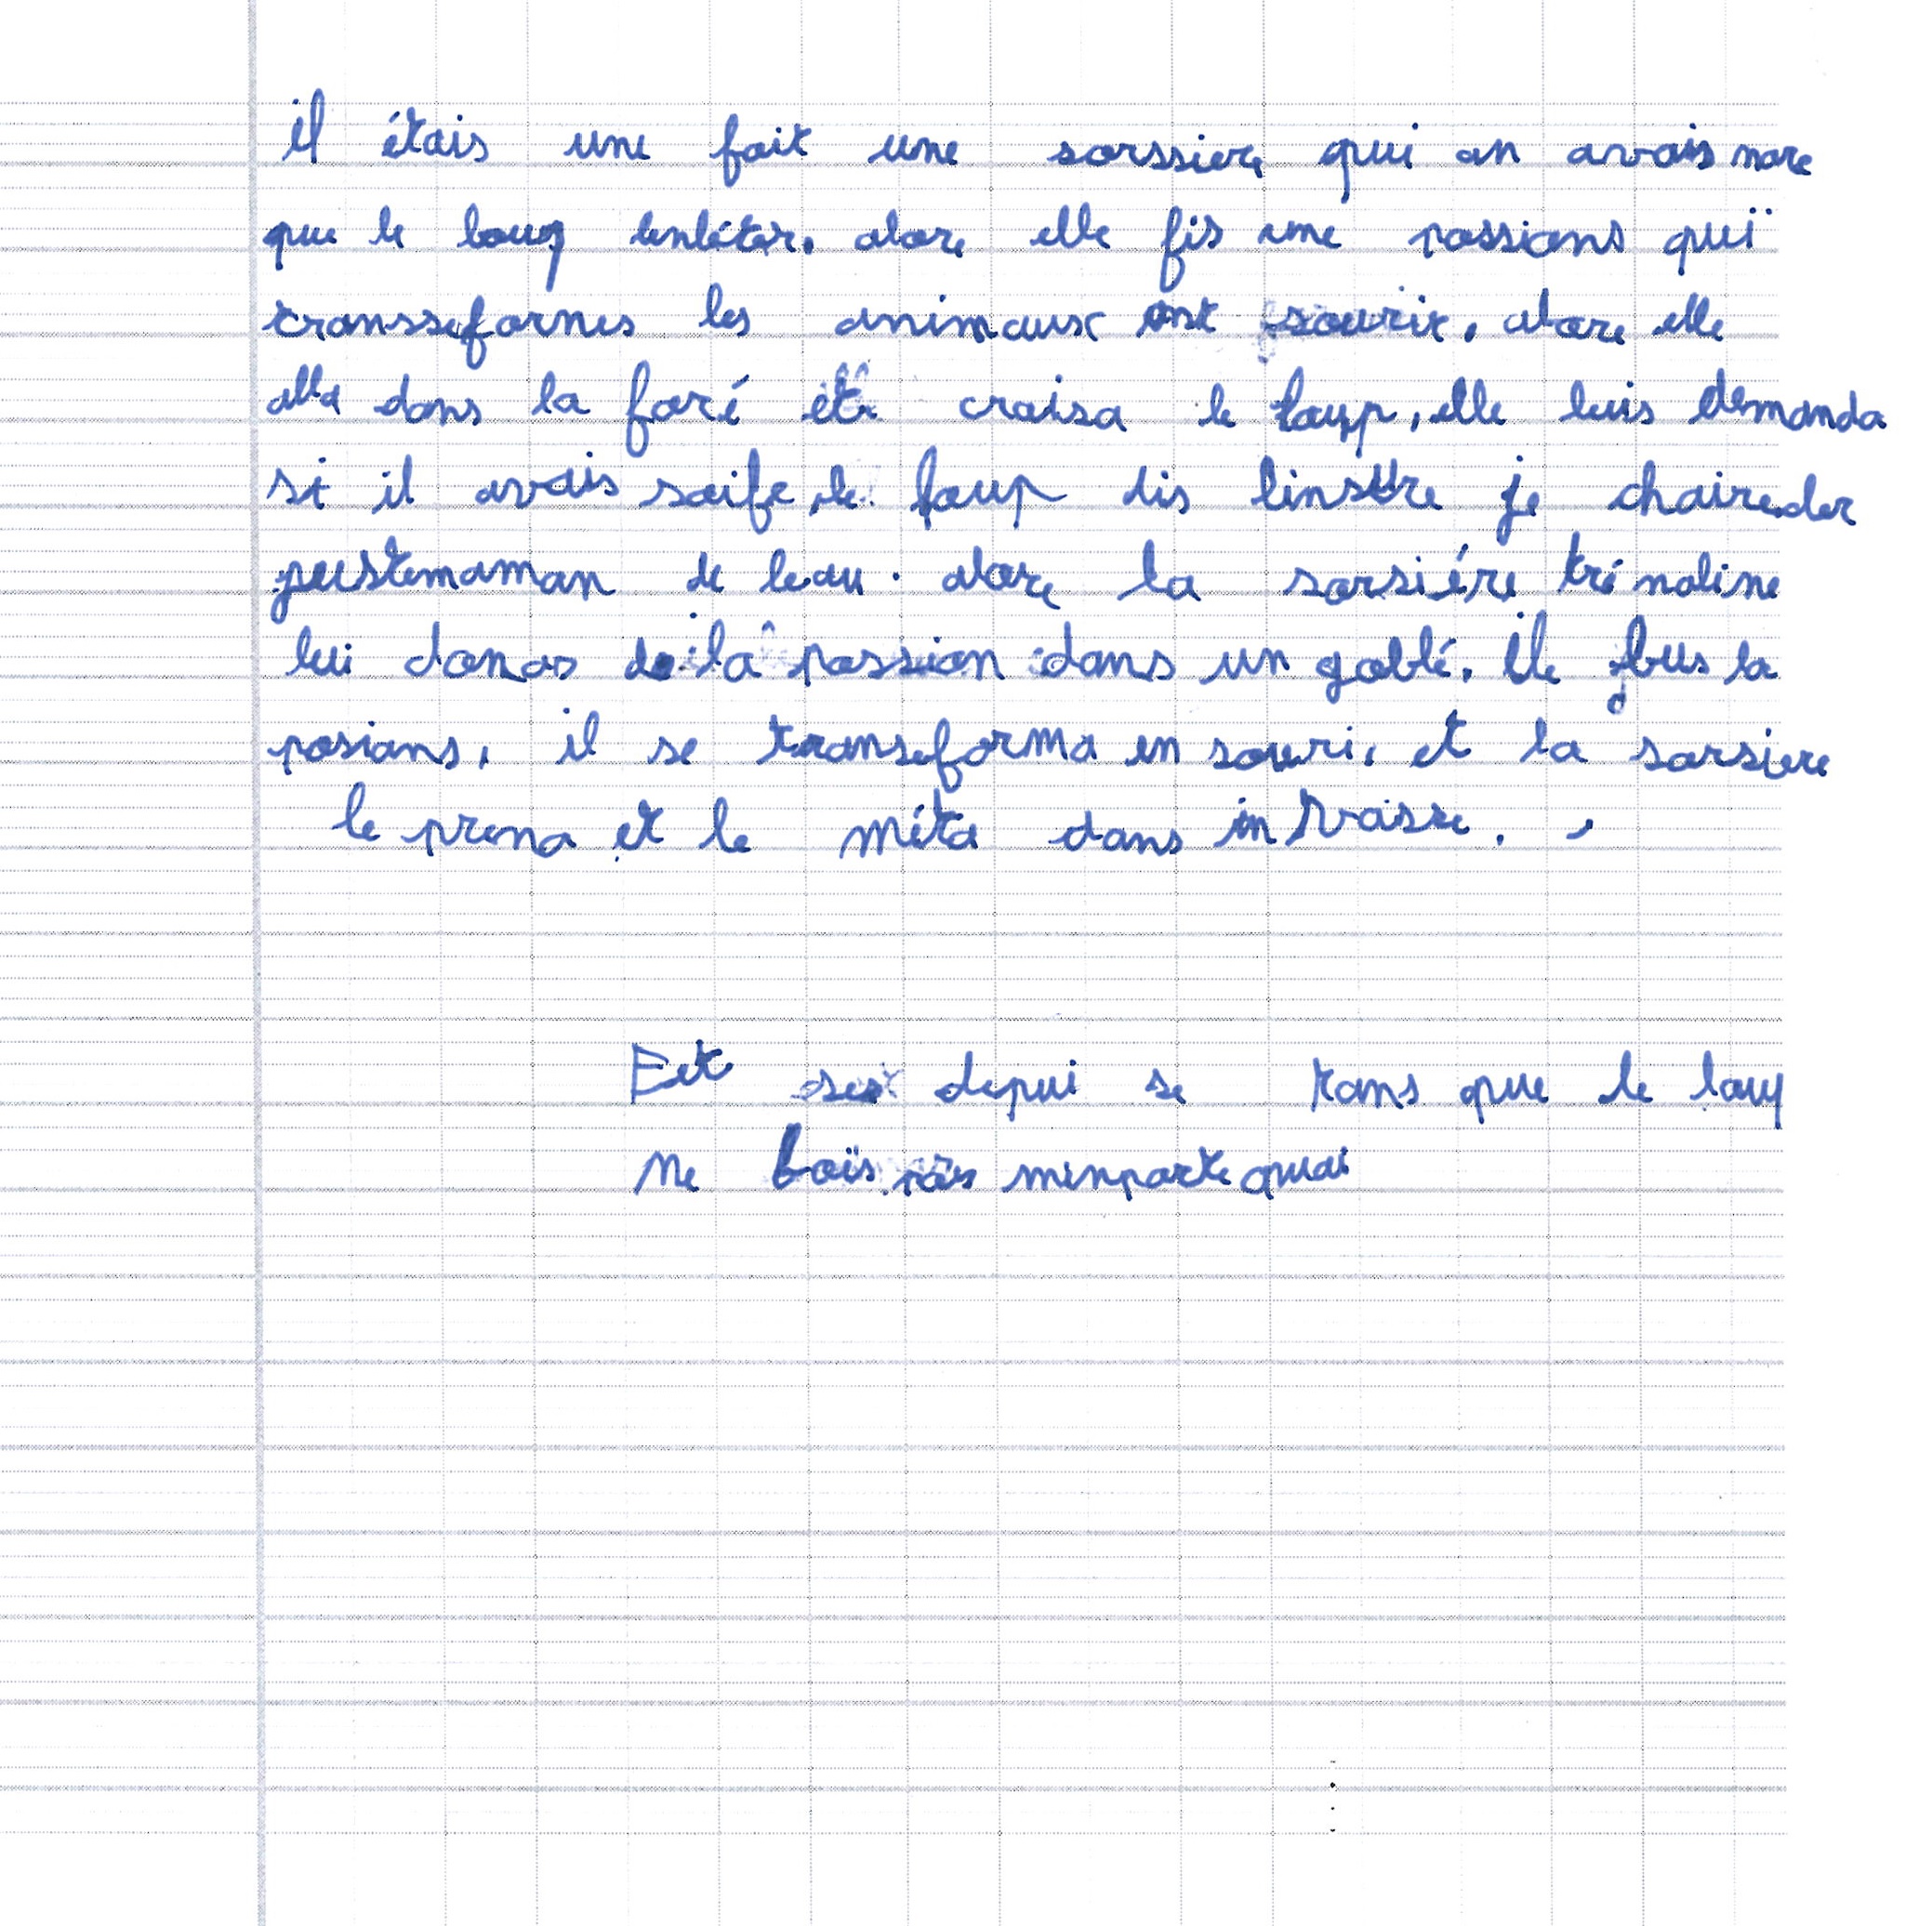 il étais une foit une sorssiere qui an avais mare
que le loup lenbétér. alore elle fis une possions qui
transseformes les animaux ent sourit. alore elle
alla dans la foré et croisa le loup, elle luis demanda
si il avais soife, le loup dis linstre je chaireder
justemaman de leau. alore la sorsiére tré maline
lui dona de la possion dans un goblé. Ile bus la
posions, il se transeforma en souri, et la sorsiere
le prena et le méta dans in vasse.
Eet ses depui se tans que le loup
ne bois pas minporte quoi